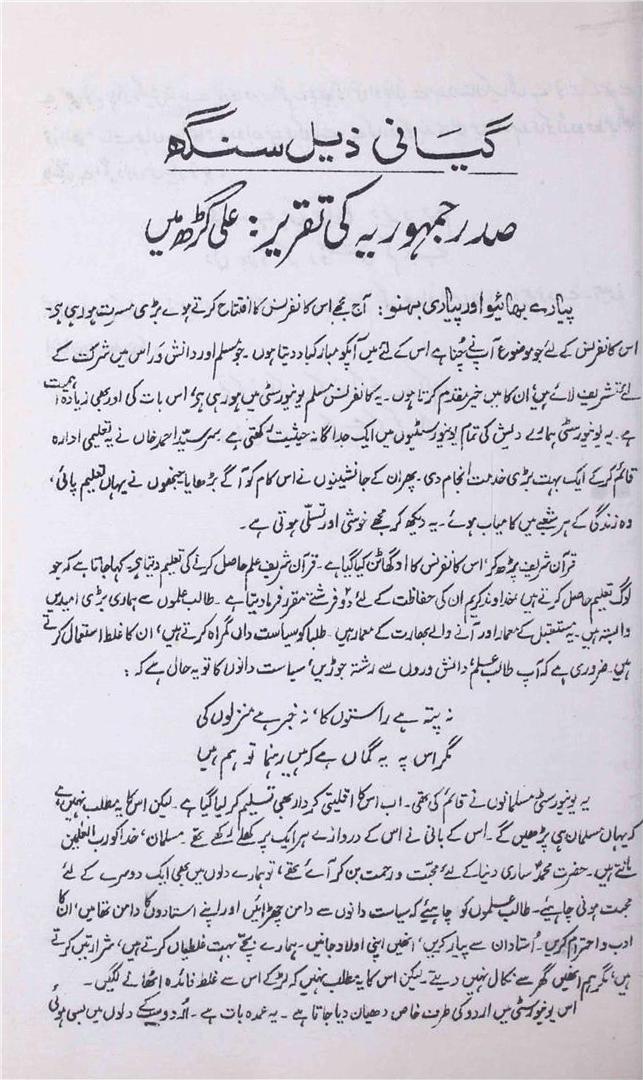 گیانی ذیل سنگھ
صدر جمہوریہ کی تقریر: علی گڑھ میں
پیارے بھائیو اور پیاری بہنو: آج مجھے اس کانفرنس کا افتتاح کرتے ہوے بڑی مسرت ہورہی ہے۔
اس کانفرنس کے لئے جو موضوع آپ نے چُنا ہے اس کے لئے میں آپکو مبارکباد دیتا ہوں۔ جو مسلم اور دانش وَر اس میں شرکت کے
لئے تشریف لائے ہیں، ان کا میں خیرمقدم کرتا ہوں۔ یہ کانفرنس مسلم یونیورسٹی میں ہورہی ہے، اس بات کی اور بھی زیادہ اہمیت
ہے۔ یہ یونیورسٹی ہمارے دلیش کی تمام یونیورسٹیوں میں ایک جداگانہ حیثیت رکھتی ہے۔ سرسید احمد خاں نے یہ تعلیمی ادارہ
قائم کرکے ایک بہت بڑی خدمت انجام دی۔ پھر ان کے جانشینوں نے اس کام کو آگے بڑھایا جنھوں نے یہاں تعلیم پائی،
وہ زندگی کے ہر شعبے میں کامیاب ہوئے۔ یہ دیکھ کر مجھے خوشی اور تسلّی ہوتی ہے۔
قرآن شریف پڑھ کر، اس کانفرنس کا اودگھاٹن کیا گیا ہے۔ قرآن شریف علم حاصل کرنے کی تعلیم دیتا ہے۔ کہا جاتا ہے کہ جو
لوگ تعلیم حاصل کرتے ہیں، خداوند کریم ان کی حفاظت کے لئے ۲ فرشتے مقرر فرما دیتا ہے۔ طالب علموں سے ہماری بڑی امیدیں
وابستہ ہیں۔ یہ مستقبل کے معمار اور آنے والے بھارت کے معمار ہیں۔ طلبا کو سیاست داں گمراہ کرتے ہیں، ان کا غلط استعمال کرتے
ہیں۔ ضروری ہے کہ آپ طالب علم، دانش وروں سے رشتہ جوڑیں، سیاست دانوں کا تو یہ حال ہے کہ:
نہ پتہ ہے راستوں کا، نہ خبر ہے منزلوں کی
مگر اس پہ یہ گماں ہے کہ ہیں رہنما تو ہم ہیں
یہ یونیورسٹی مسلمانوں نے قائم کی تھی۔ اب اس کا اقلیتی کردار بھی تسلیم کر لیا گیا ہے۔ لیکن اس کا یہ مطلب نہیں ہے
کہ یہاں مسلمان ہی پڑھیں گے۔ اس کے بانی نے اس کے دروازے ہر ایک پر کھلے رکھے تھے۔ مسلمان، خدا کو رب العٰلمین
مانتے ہیں۔ حضرت محمدؐ ساری دنیا کے لئے محبّت و رحمت بن کر آئے تھے، تو ہمارے دلوں میں بھی ایک دوسرے کے لئے
محبت ہونی چاہیئے۔ طالب علموں کو چاہیئے کہ سیاست دانوں سے دامن چھڑائیں اور اپنے استادوں کا دامن تھامیں، ان کا
ادب و احترام کریں۔ اُستاد ان سے پیار کریں، انھیں اپنی اولاد جانیں۔ ہمارے بچّے بہت غلطیاں کرتے ہیں، شرارتیں کرتے
ہیں، مگر ہم انھیں گھر سے نکال نہیں دیتے۔ لیکن اس کا یہ مطلب نہیں کہ لڑکے اس سے غلط فائدہ اٹھانے لگیں۔
اس یونیورسٹی میں اردو کی طرف خاص دھیان دیا جاتا ہے۔ یہ عمدہ بات ہے۔ اُردو سب کے دلوں میں بسی ہوئی